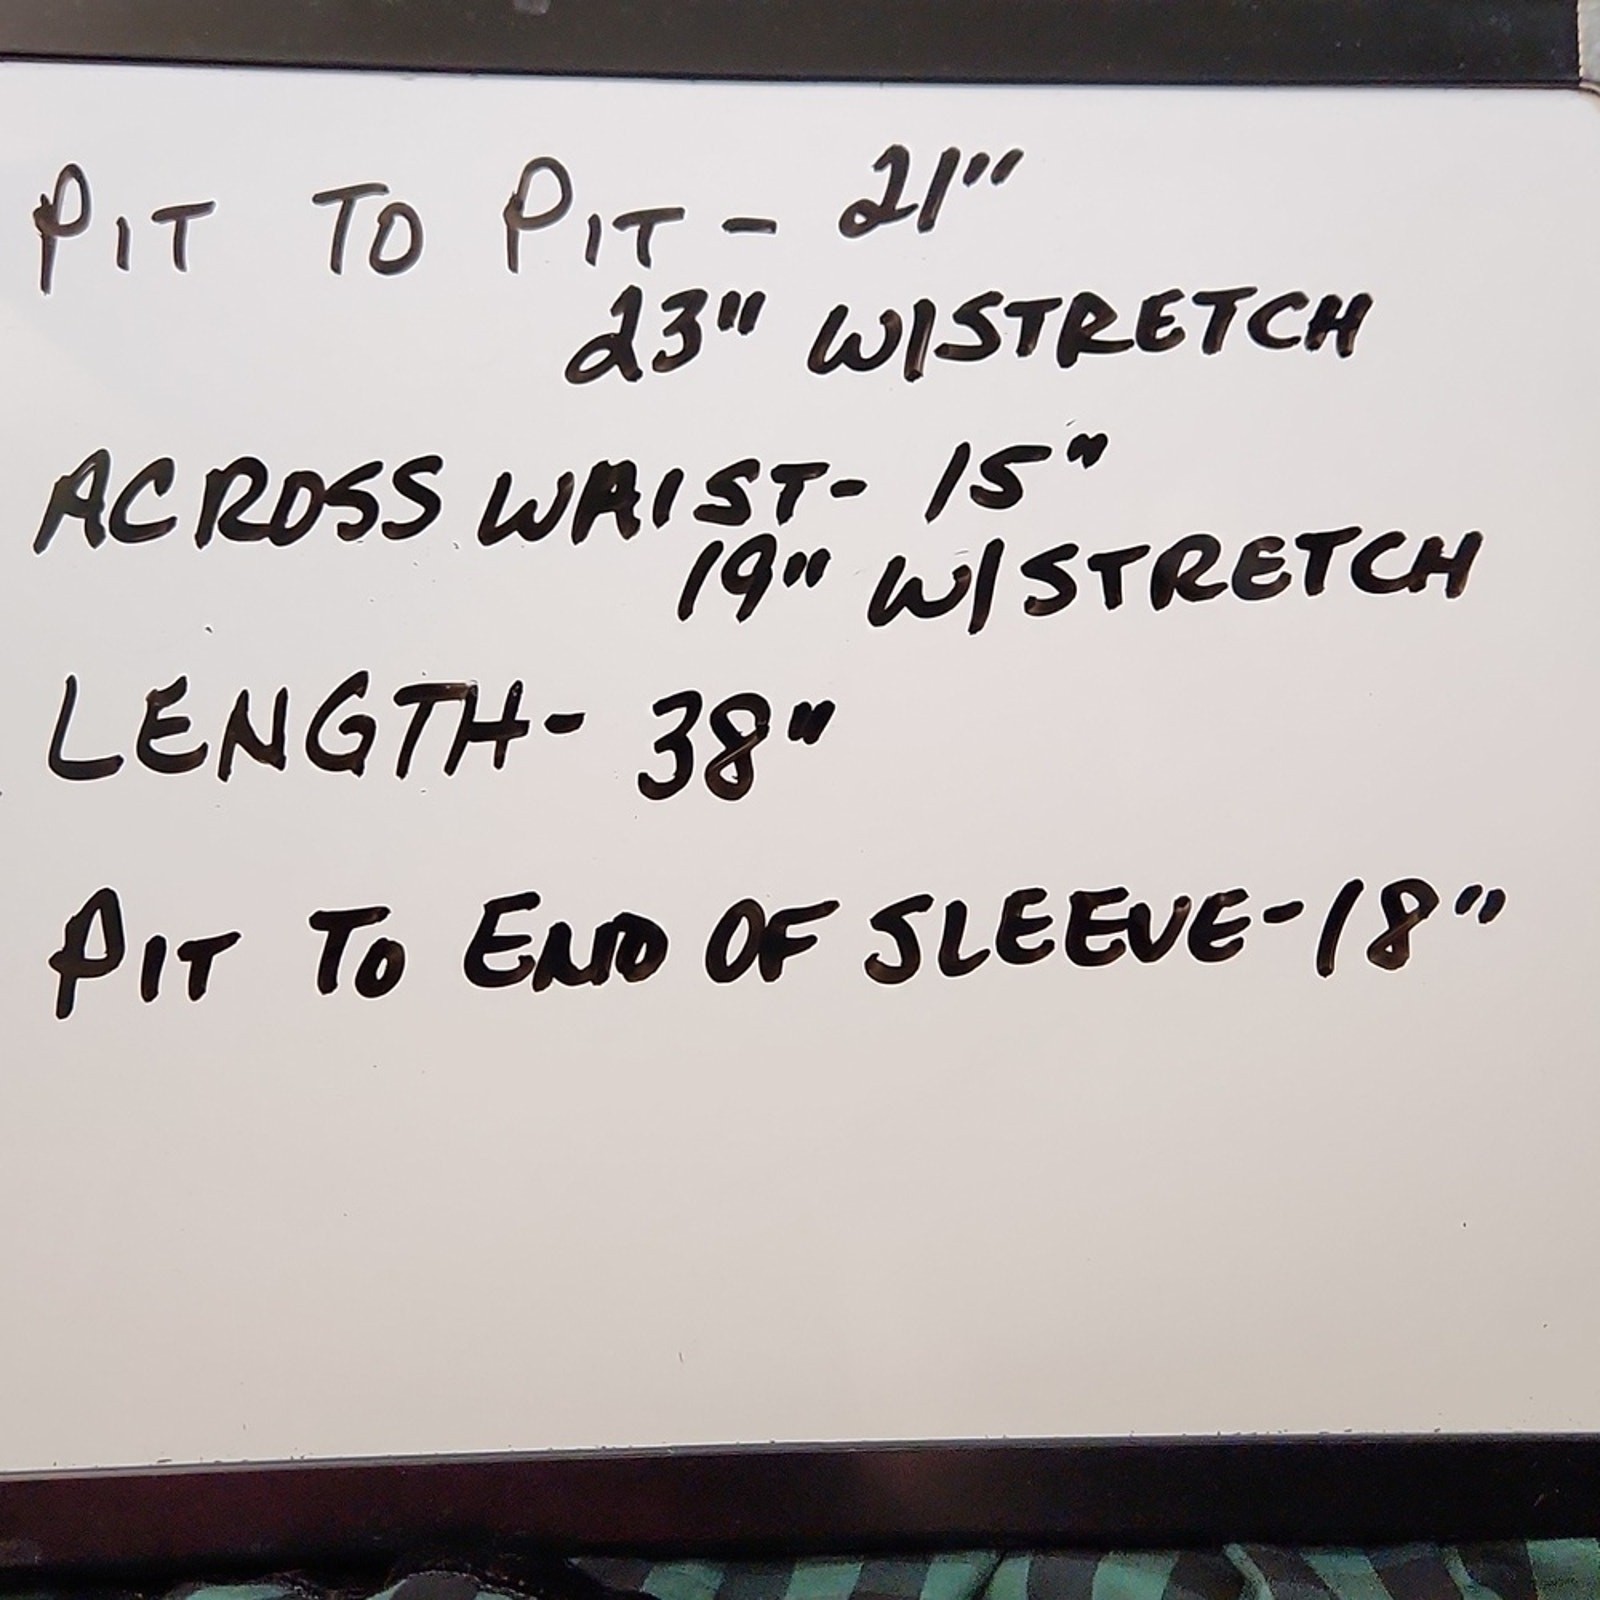 PIT TO PIT - 21"
23" W/STRETCH
ACROSS WAIST- 15"
19" W/STRETCH
LENGTH- 38"
PIT TO END OF SLEEVE-18"